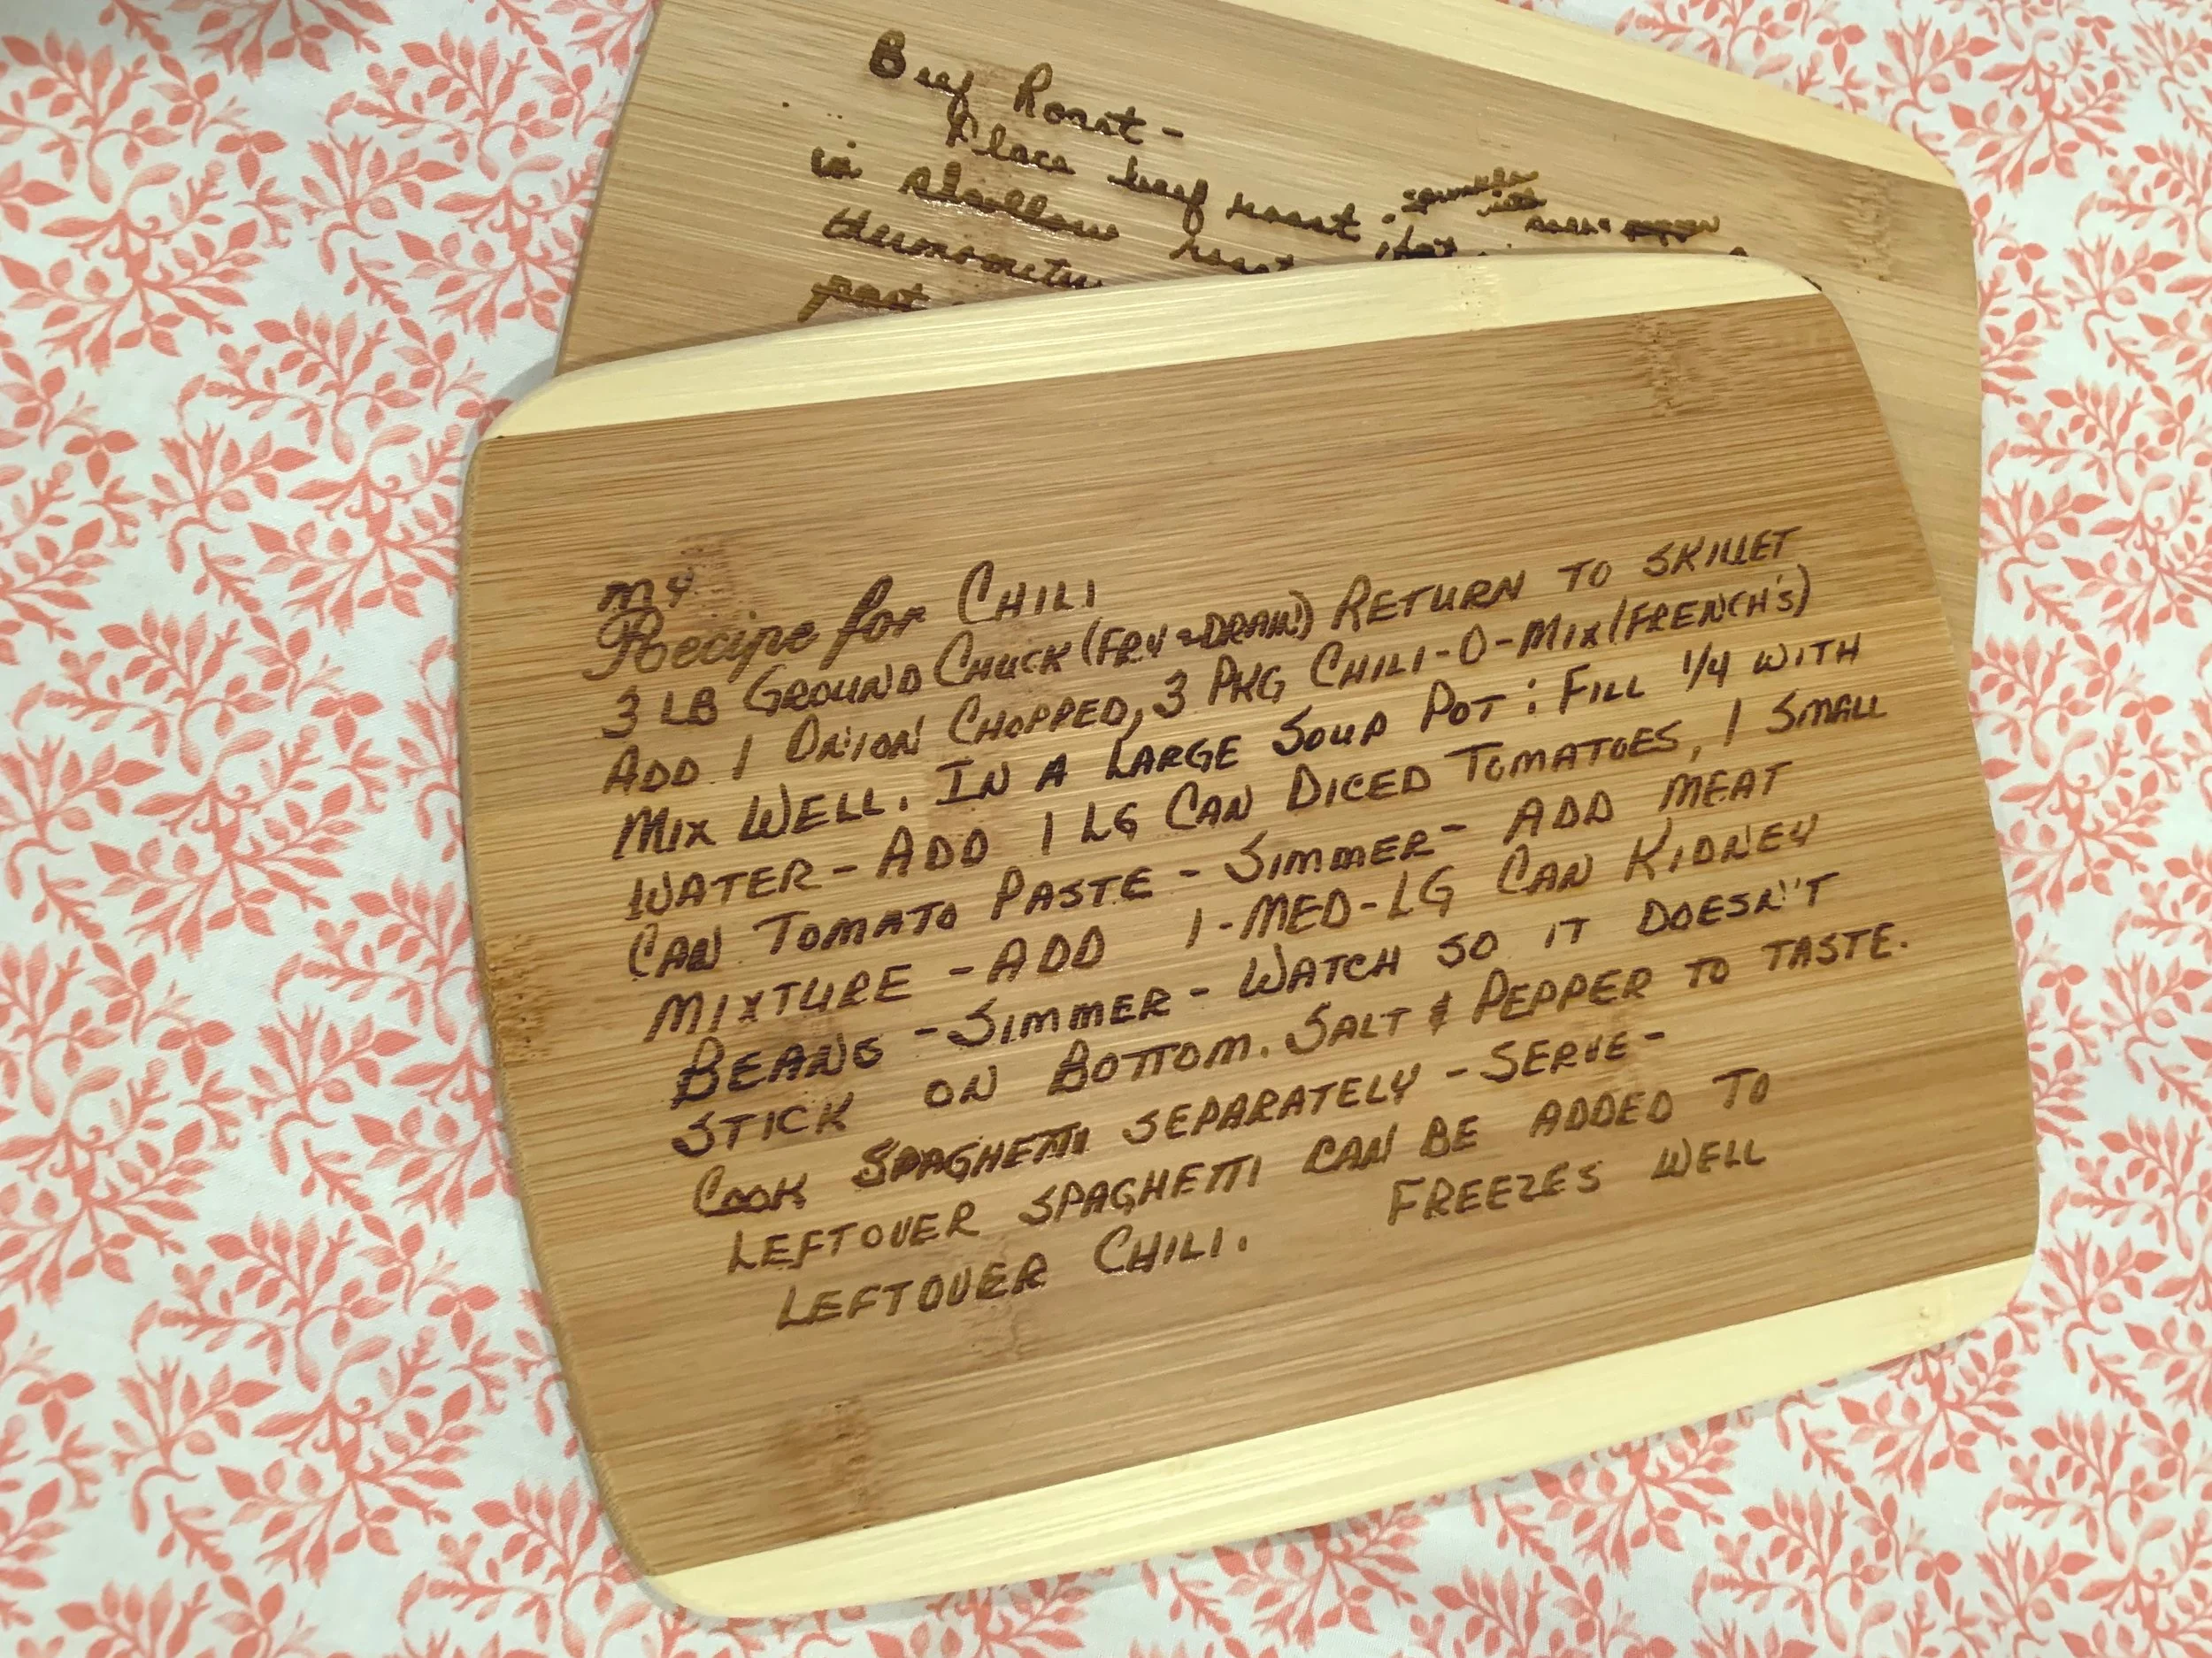 Beef Roast -
Place beef roast. sprinkle with salt & pepper
in shallow roast
thermometer
part
My
Recipe for CHILI
3 LB GROUND CHUCK (FRY & DRAIN) RETURN TO SKILLET
ADD 1 ONION CHOPPED, 3 PKG CHILI-O-MIX (FRENCH'S)
MIX WELL. IN A LARGE SOUP POT: FILL 1/4 WITH
WATER - ADD 1 LG CAN DICED TOMATOES, 1 SMALL
CAN TOMATO PASTE - SIMMER - ADD MEAT
MIXTURE - ADD 1-MED-LG CAN KIDNEY
BEANS - SIMMER - WATCH SO IT DOESN'T
STICK ON BOTTOM. SALT & PEPPER TO TASTE.
COOK SPAGHETTI SEPARATELY - SERVE -
LEFTOVER SPAGHETTI CAN BE ADDED TO
LEFTOVER CHILI. FREEZES WELL